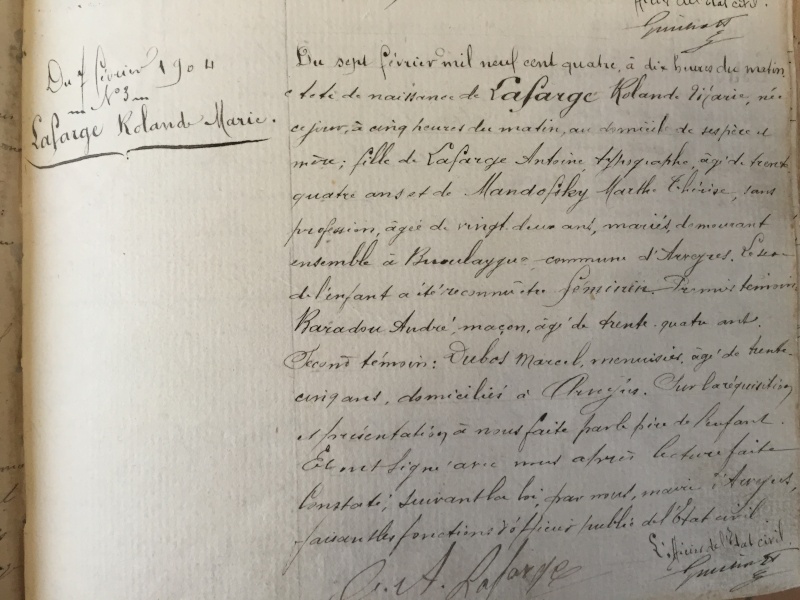 Du 7 février 1904
N° 3
Lafarge Rolande Marie.
Du sept février mil neuf cent quatre, à dix heures du matin
acte de naissance de Lafarge Rolande Marie, née
ce jour, à cinq heures du matin, au domicile de ses père et
mère; fille de Lafarge Antoine, typographe, âgé de trente
quatre ans et de Mandofsky Marthe Thérèse, sans
profession, âgée de vingt deux ans, mariés, demeurant
ensemble à commune d'Arveyres. Le sexe
de l'enfant a été reconnu être féminin. Premier témoin
Baradou André, maçon, âgé de trente quatre ans.
Second témoin: Dubos Marcel, menuisier, âgé de trente-
cinq ans, domiciliés à Arveyres. Sur la réquisition
et présentation à nous faite par le père de l'enfant.
Et ont signé avec nous après lecture faite
Constaté, suivant la loi, par nous, maire d'Arveyres,
faisant les fonctions d'officier public de l'Etat civil
L'officier de l'état civil.
A. Lafarge